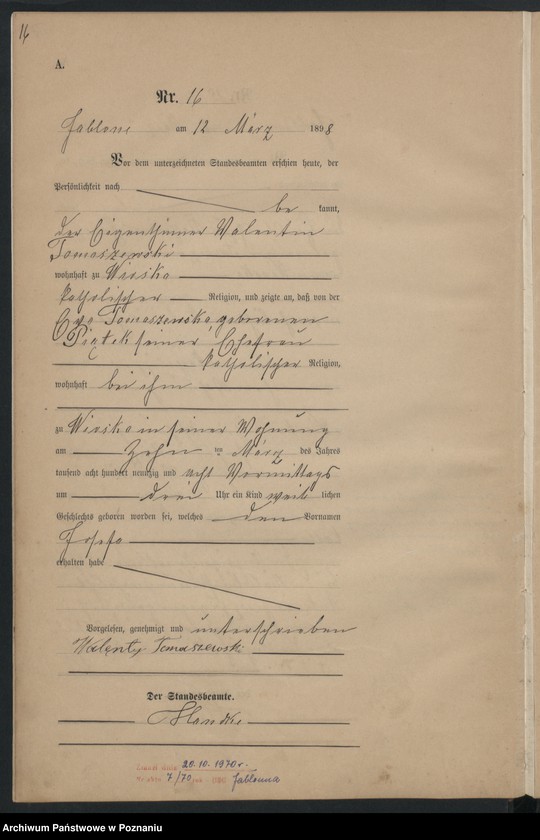 16
A.
Nr. 16
Jablone am 12 März 1898
Vor dem unterzeichneten Standesbeamten erschien heute, der
Persönlichkeit nach
be kannt,
der Eigenthümer Valentin
Tomaszewski
wohnhaft zu Wioska
katholischer Religion, und zeigte an, daß von der
Eva Tomaszewska, geborenen
Piątek seiner Ehefrau
katholischer Religion,
wohnhaft bei ihm
zu Wioska in seiner Wohnung
am Zehn ten März des Jahres
tausend acht hundert neunzig und acht Vormittags
um drei Uhr ein Kind weib lichen
Geschlechts geboren worden sei, welches den Vornamen
Josefa
erhalten habe
Vorgelesen, genehmigt und unterschrieben
Walenty Tomaszewski
Der Standesbeamte.
20.10.1970 r.
7/70 Jabłonna
Archiwum Państwowe w Poznaniu